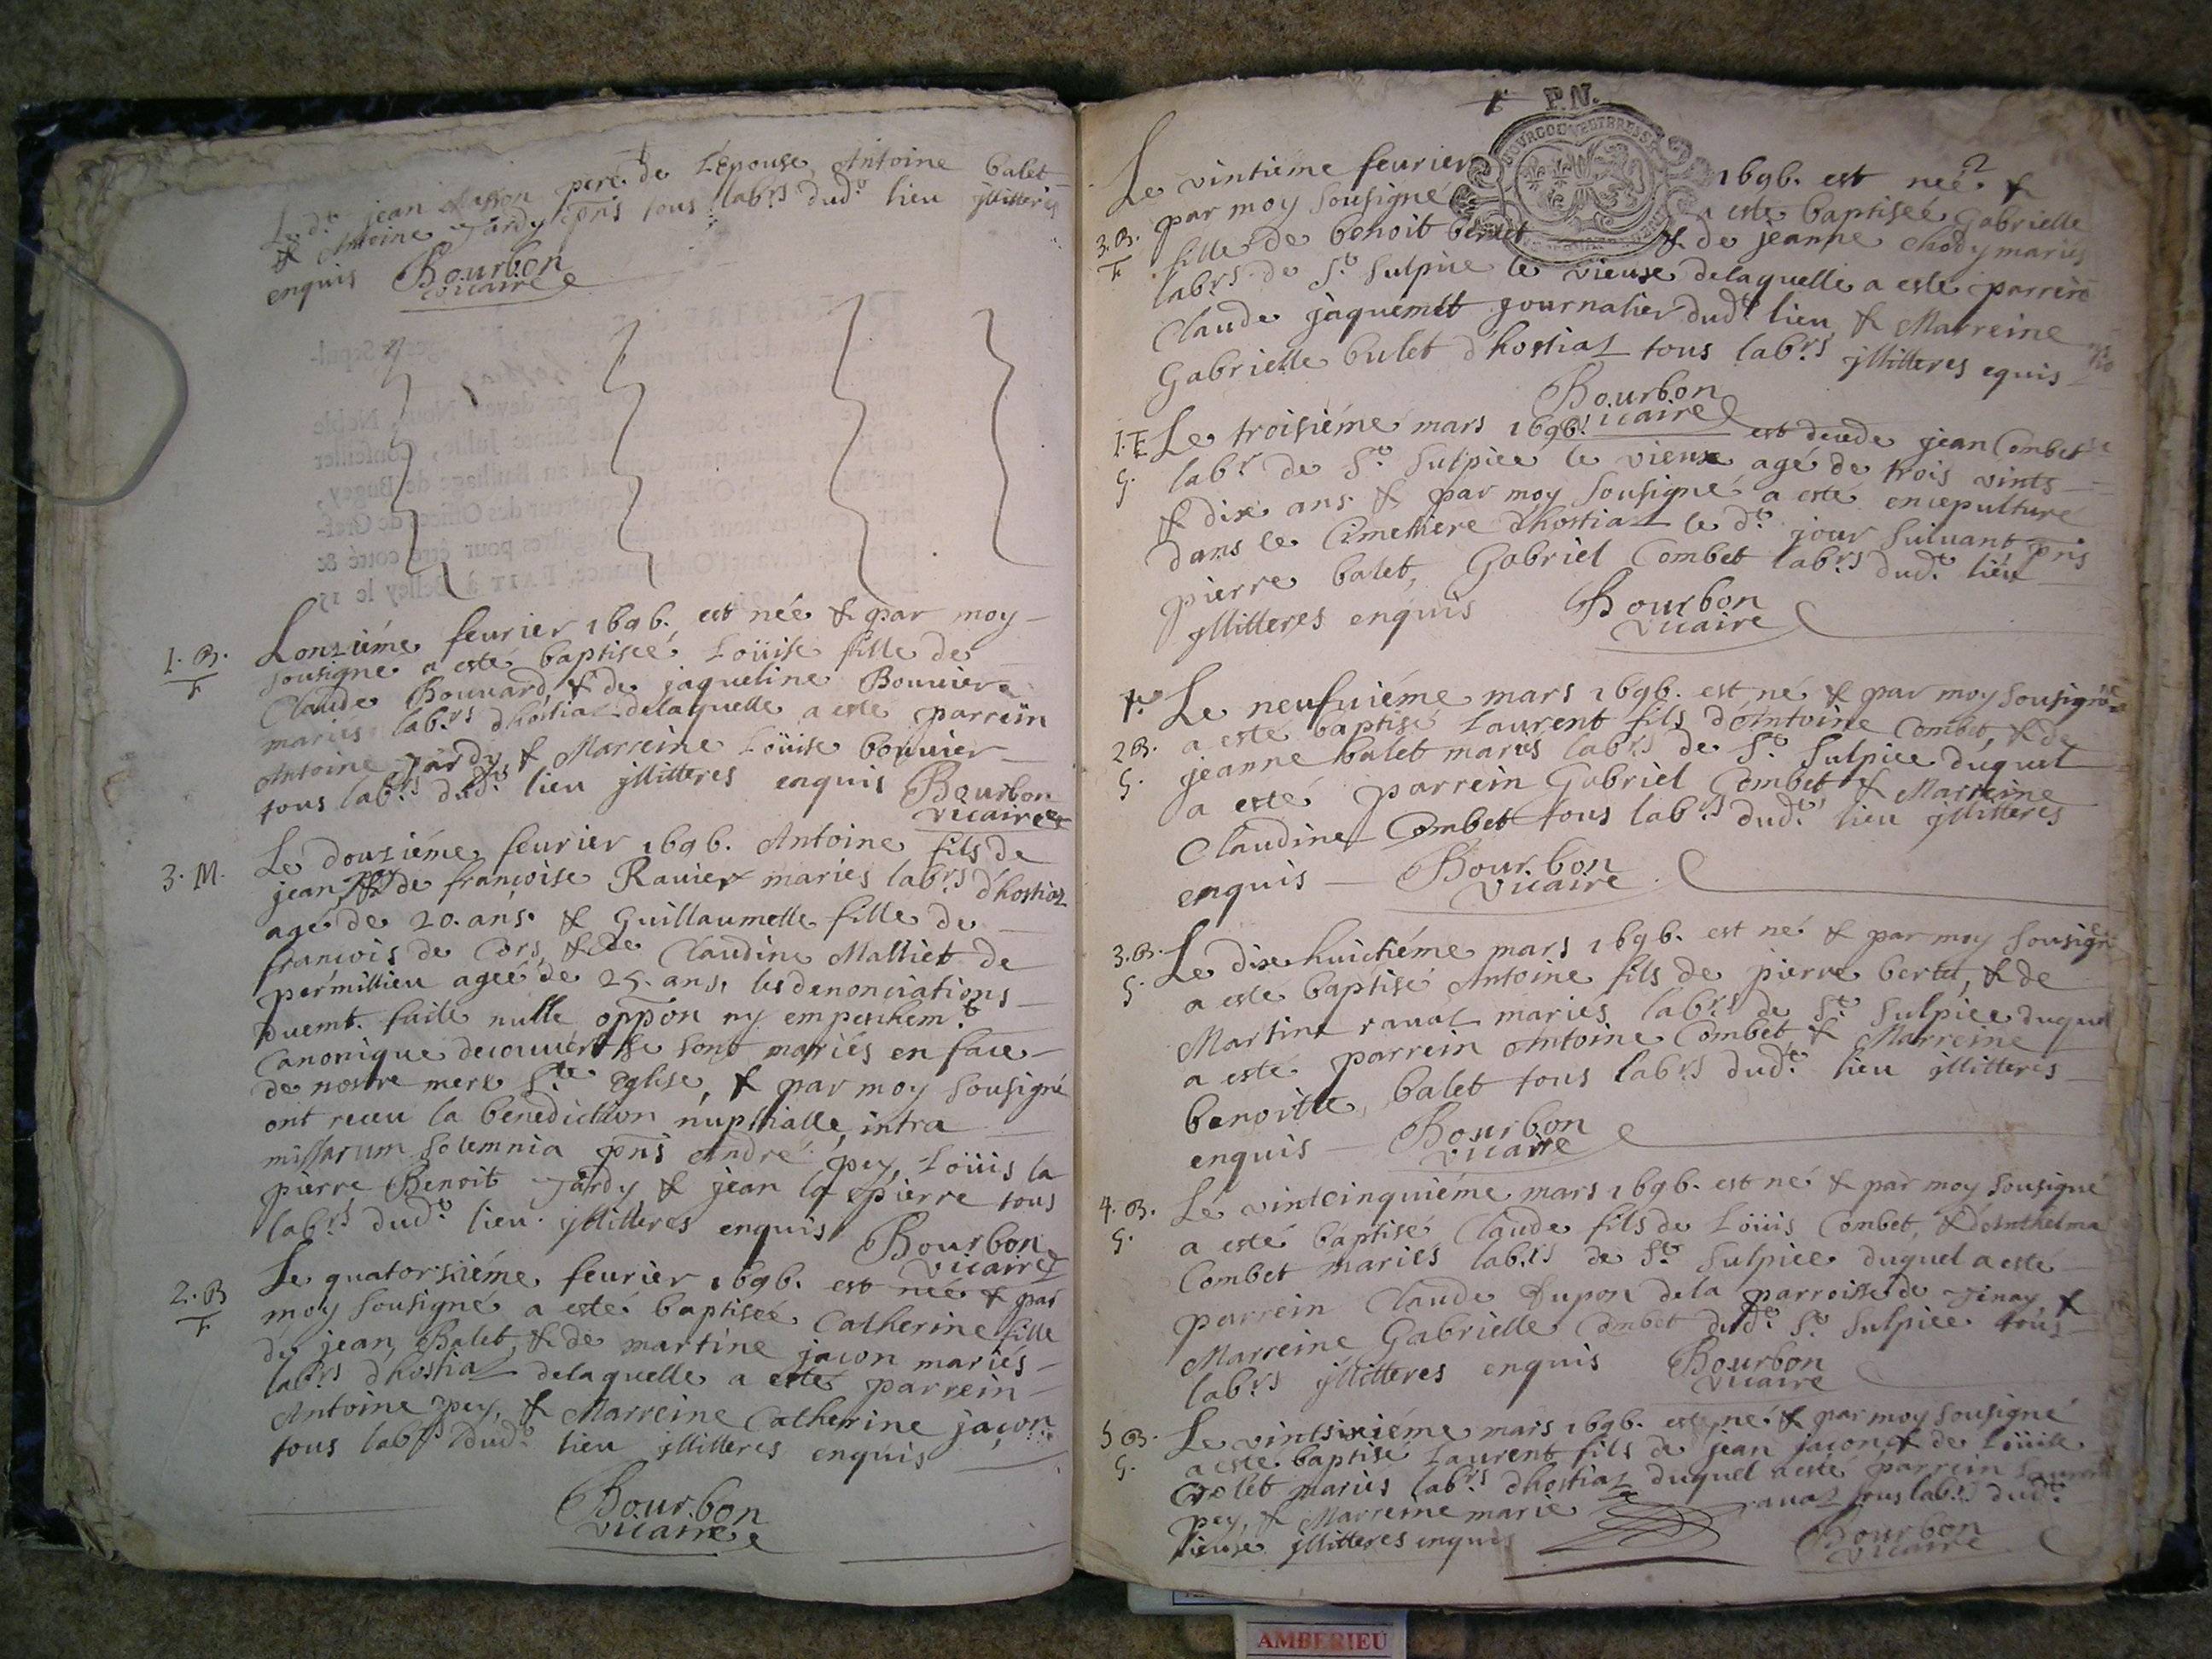 Led.t jean pere de Lepouse, Antoine balet
& Antoine Tardy pnts tous labrs dud.t lieu jllitteres
enquis Bourbon
vicaire
1. B.
F
Lonziéme feurier 1696. est née & par moy
sousigne a esté baptisée Loüise fille de
Claude Bouuard, & de jaqueline Bouuier
mariés labrs dhostiaz delaquelle a este parrein
Antoine Tardy & Marreine Loüise bouuier
tous labrs dud.t lieu jllitteres enquis Bourbon
vicaire
3. M.
Le douziéme feurier 1696. Antoine fils de
jean pey & de françoise Rauier mariés labrs dhostiaz
agé de 20. ans. & Guillaumette fille de
françois de Cors, & de Claudine Malliet de
permillieu ageé de 25. ans, les denonciations
duemt. faite nulle oppon ny empeschem.t
Canonique decouuert se sont mariés en face
de nostre mere S.te Eglise, & par moy sousigné
ont receu la benediction nuptialle, intra
missarum solemnia pnts André pey, Loüis la
pierre Benoit Tardy & jean la pierre tous
labrs dud.t lieu jllitteres enquis Bourbon
vicaire
2. B
F
Le quatorsiéme feurier 1696. est née & par
moy sousigné a esté baptisée Catherine fille
de jean Balet, & de martine jacon mariés
labrs dhostiaz delaquelle a esté parrein
Antoine pey, & Marreine Catherine jacon
tous labrs dud.t lieu jllitteres enquis
Bourbon
vicaire
P.N.
2
Le vintiéme feurier 1696. est neé &
par moy sousigné a este baptiseé Gabrielle
3. B.
F
fille de benoit & de jeanne mariés
labrs de S.t Sulpice le vieux delaquelle a este parrein
Claude jaquemet journalier dud.t lieu & Marreine
Gabrielle bulet dhostiaz tous labrs jllitteres equis
Bourbon
vicaire
1. E
G.
Le troisiéme mars 1696. est decede jean Combet
labr de S.t Sulpice le vieux agé de trois vints
& dix ans & par moy sousigné a esté encepulturé
dans le Cimettiere dhostiaz le d.t jour suiuant pnts
pierre balet, Gabriel Combet labrs dud.t lieu
jllitteres enquis Bourbon
vicaire
2 B.
G.
Le neufuiéme mars 1696. est né & par moy sousigné
a esté baptisé Laurent fils dAntoine Combet, & de
jeanne balet mariés labrs de S.t Sulpice duquel
a esté parrein Gabriel Combet & Marreine
Claudine Combet tous labrs dud.t lieu jllitteres
enquis Bourbon
vicaire
3. B.
G.
Le dixhuictiéme mars 1696. est né & par moy sousigné
a esté baptisé Antoine fils de pierre bertet, & de
Martine rauaz mariés labrs de S.t Sulpice duquel
a esté parrein Antoine Combet & Marreine
benoitte balet tous labrs dud.t lieu jllitteres
enquis Bourbon
vicaire
4. B.
G.
Le vintcinquiéme mars 1696. est né & par moy sousigné
a esté baptisé Claude fils de Loüis Combet, & dAnthelma
Combet mariés labrs de S.t Sulpice duquel a esté
parrein Claude dupon dela parroisse de &
Marreine Gabrielle Combet dud.t S.t Sulpice tous
labrs jllitteres enquis Bourbon
vicaire
5 B.
G.
Le vintsixiéme mars 1696. est né & par moy sousigné
a este baptisé Laurent fils de jean jacon, & de Loüise
mariés labrs dhostiaz duquel a esté parrein Laurent
pey, & Marreine marie rauaz tous labrs dud.t
lieux jllitteres enquis Bourbon
vicaire
AMBERIEU